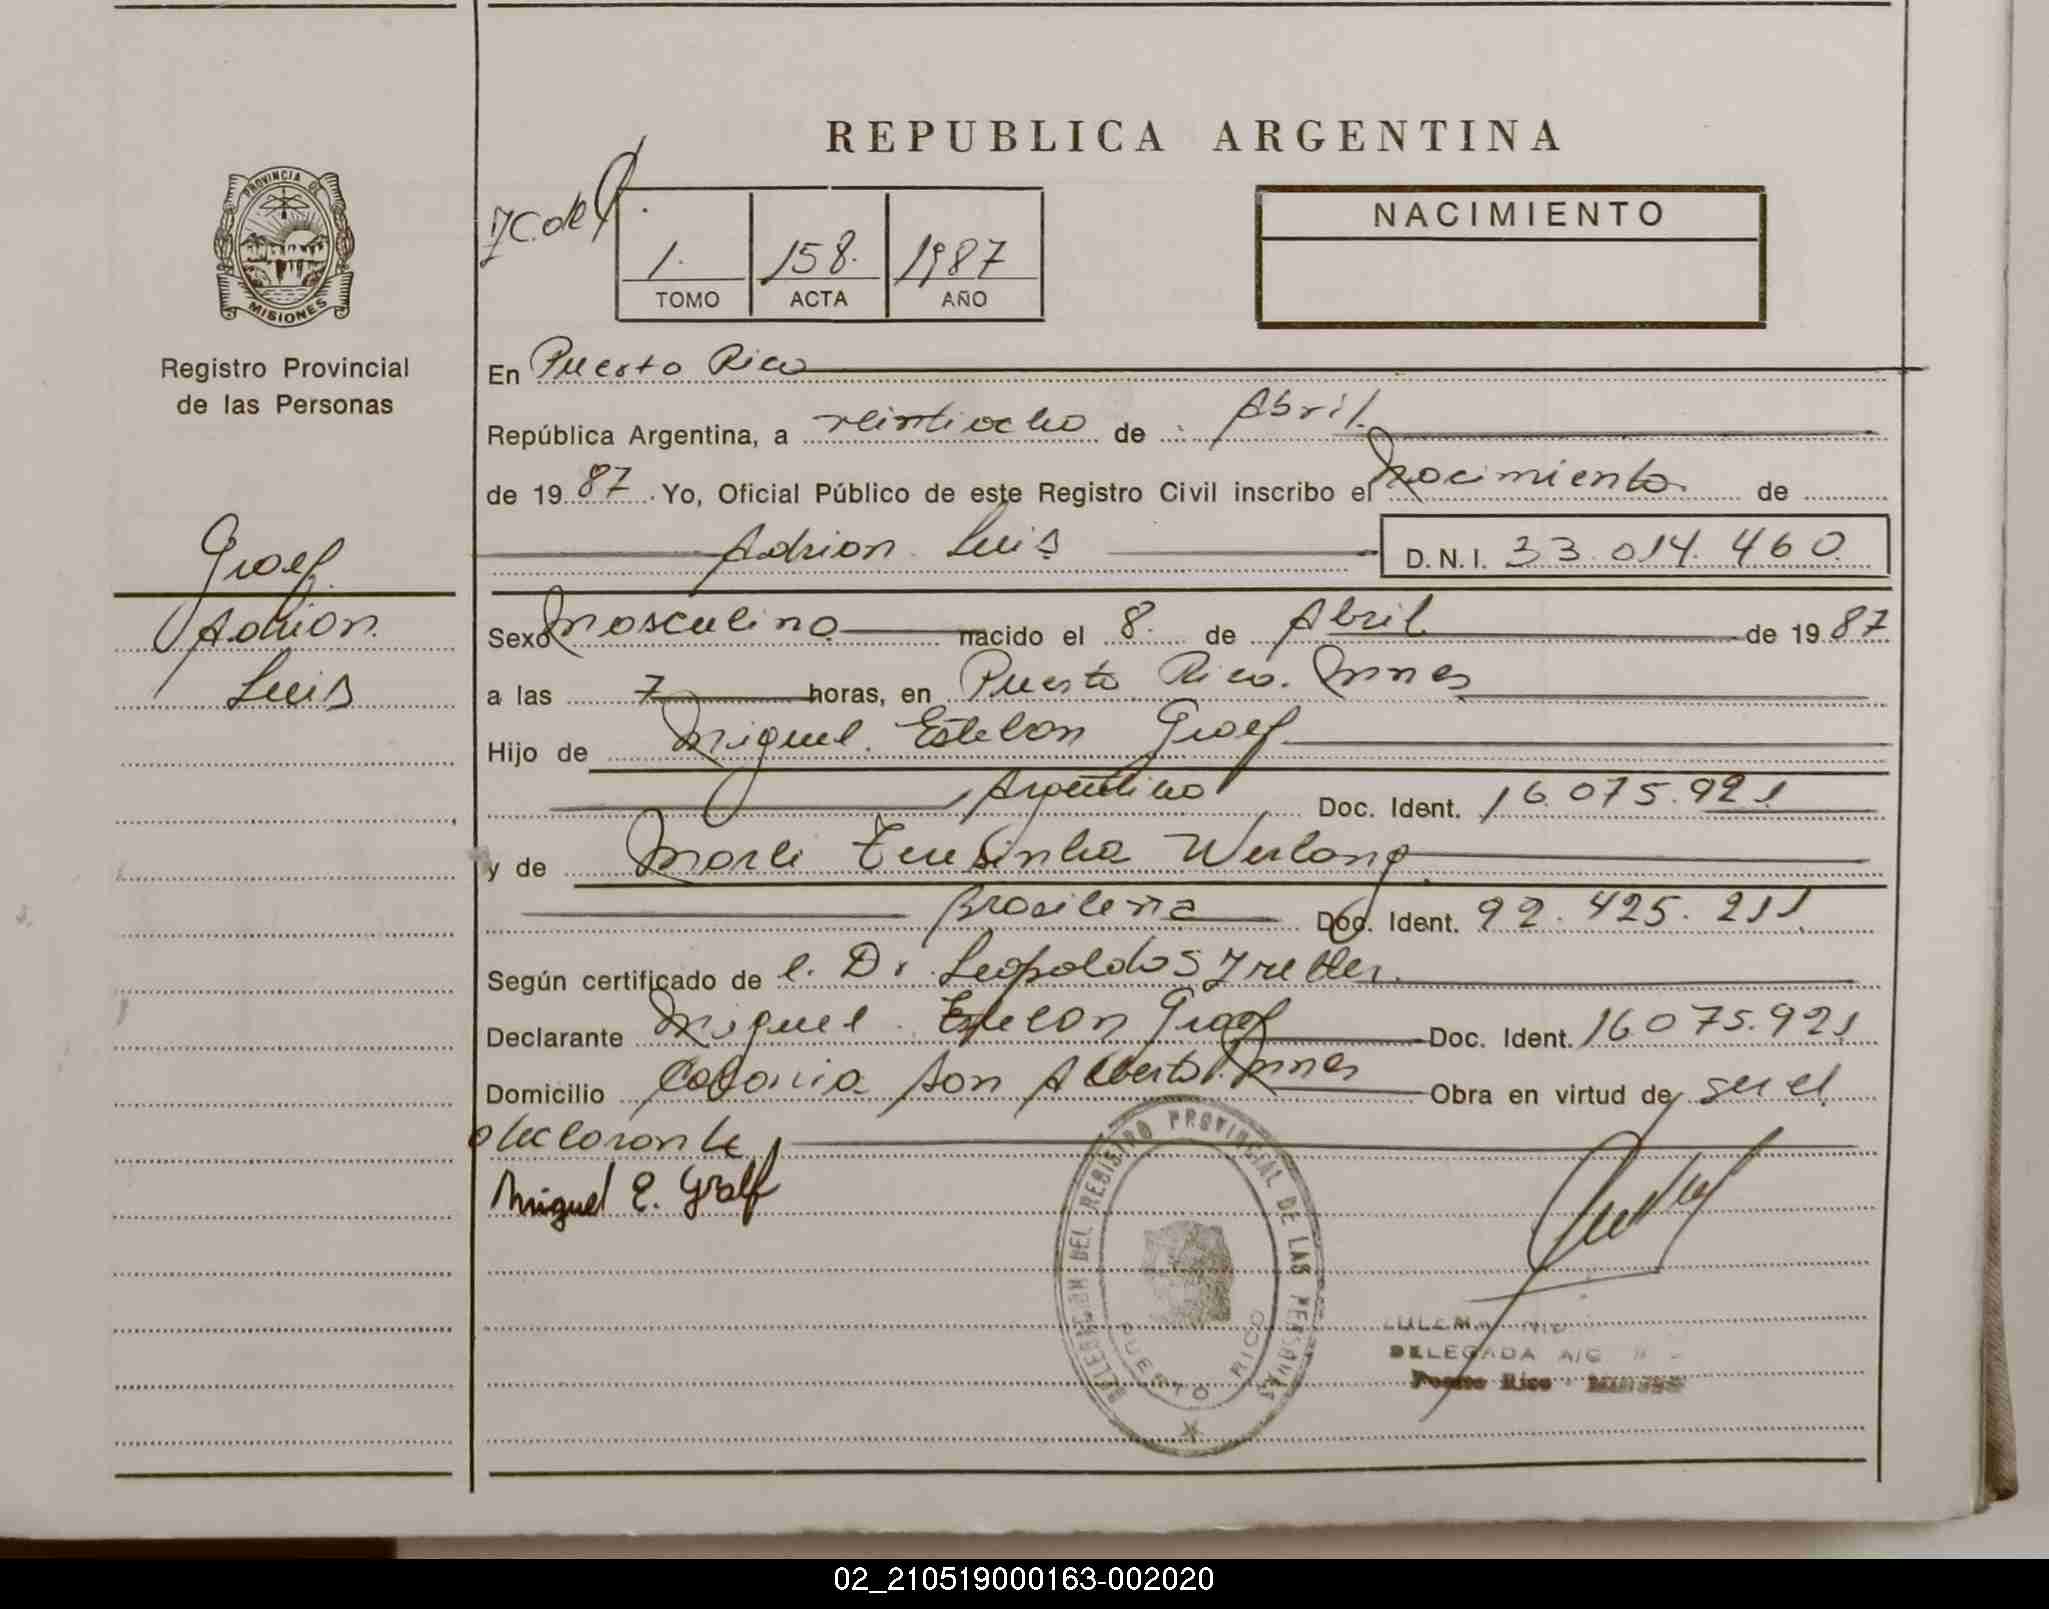 REPUBLICA ARGENTINA
PROVINCIA DE
MISIONES
Registro Provincial
de las Personas
1. 158. 1987
TOMO ACTA AÑO
NACIMIENTO
Graef
Adrian
Luis
En Puerto Rico
República Argentina, a veintiocho de Abril.
de 19 87. Yo, Oficial Público de este Registro Civil inscribo el Nacimiento de
Adrian Luis D.N.I. 33.014.460
Sexo Masculino nacido el 8. de Abril de 19 87
a las 7 horas, en Puerto Rico. Mnes
Hijo de Miguel Esteban Graef
Argentino Doc. Ident. 16.075.921
y de Marli Teresinha Werlang
Brasileña Doc. Ident. 92.425.211
Según certificado de e. Dr. Leopoldo
Declarante Miguel Esteban Graef Doc. Ident. 16.075.921
Domicilio Colonia San Alberto. Mnes Obra en virtud de ser el
declarante
Miguel E. Graef
DELEGACION DEL REGISTRO PROVINCIAL DE LAS PERSONAS
PUERTO RICO
DELEGADA A/C
Puerto Rico - Misiones
02_210519000163-002020